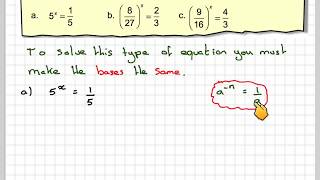 a. 5ˣ = 1/5 b. (8/27)ˣ = 2/3 c. (9/16)ˣ = 4/3
To solve this type of equation you must
make the bases the same.
a) 5ˣ = 1/5 a⁻ⁿ = 1/